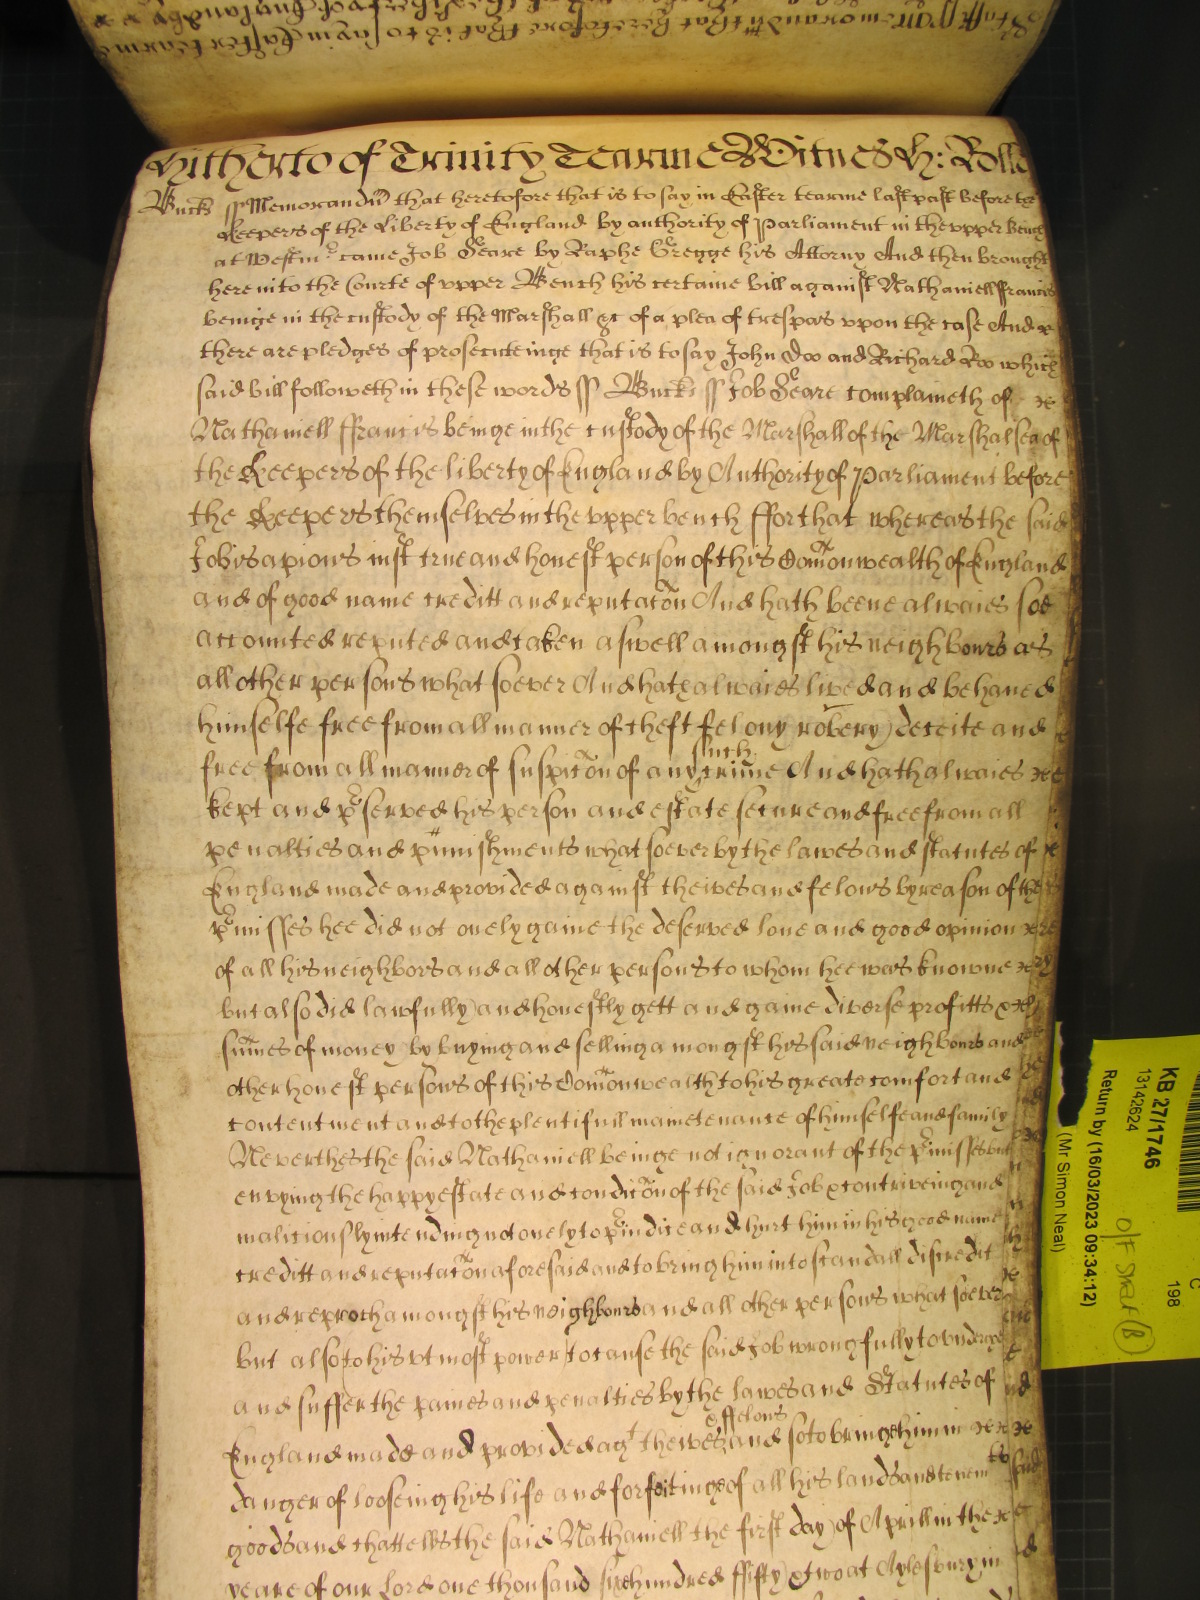 Hitherto of Trinity Tearme Witnes H: Rolle
Bucks ss Memorandũ that heretofore that is to say in Easter tearme last past before the
Keepers of the Liberty of England by authority of Parliament in the vpper bench
at Westm̃ came Job Geare by Raphe Gregge his Attorny And then brought
here into the Courte of vpper Bench his certaine bill against Nathaniell ffrancis
beinge in the custody of the Marshall &c of a plea of trespas vpon the case And
there are pledges of prosecuteinge that is to say John Doo and Richard Roo which
said bill followeth in these words ss Bucks ss Job Geare complaineth of
Nathaniell ffrancis beinge in the custody of the Marshall of the Marshalsea of
the Keepers of the liberty of England by Authority of Parliament before
the Keepers themselves in the vpper bench ffor that whereas the said
Job is a pious iust true and honest person of this Com̃onwealth of England
and of good name creditt and reputac̃on And hath beene alwaies soe
accounted reputed and taken aswell amongst his neighbours as
all other persons what soever And hath alwaies lived and behaued
himselfe free from all manner of theft felony robery deceite and
free from all manner of suspic̃on of any such crime And hath alwaies
kept and p̃served his person and estate secure and free from all
penalties and punishments what soever by the lawes and statutes of
England made and provided against theives and felons by reason of the
p̃misses hee did not onely gaine the deserved loue and good opinion
of all his neighbors and all other persons to whom hee was knowne
but also did lawfully and honestly gett and gaine diverse profitts &
sum̃es of money by buying and selling amongst his said neighbours and
other honest persons of this Com̃onwealth to his greate comfort and
contentment and to the plentifull maintenance of himselfe and family
Neverthes the said Nathaniell beinge not ignorant of the p̃misses but
envying the happy estate and condic̃on of the said Job & contriveing and
malitiously intending not onely to p̃iudice and hurt him in his good name
creditt and reputac̃on aforesaid and to bring him into scandall discredit
and reproch amongst his neighbours and all other persons what soever
but also to his vtmost power to cause the said Job wrongfully to vndergoe
and suffer the paines and penalties by the lawes and Statutes of
England made and provided agt theives & ffelons and so to bringe him in
danger of looseing his life and forfeitinge of all his lands and tenemts
goods and chattells the said Nathaniell the first day of Aprill in the
yeare of our Lord one thousand sixe hundred ffifty & two at Aylesbury in
KB 27/1746
13142624
Return by (16/03/2023 09:34:12)
(Mr Simon Neal)
C
198